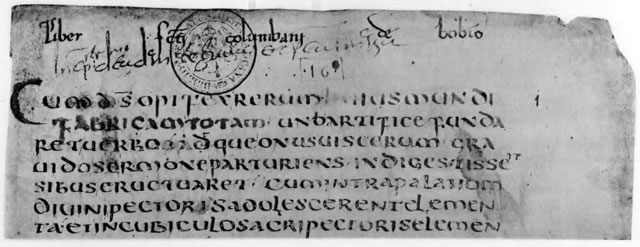 Liber sci columbani de bobio
CUMDSOPIFEXRERUM IUSMUNDI
FABRICAMTOTAM UNOARTIFICEFUNDA
RETUERBOADQUEONUSUISCERUMGRA
UIDOSERMONEPARTURIENSINDIGESTISSE
SIBUSERUCTUARETCUMINTRAPALATIUM
DIUINIPECTORISADOLESCERENTELEMEN
TAETINCUBICULOSACRIPECTORISELEMEN